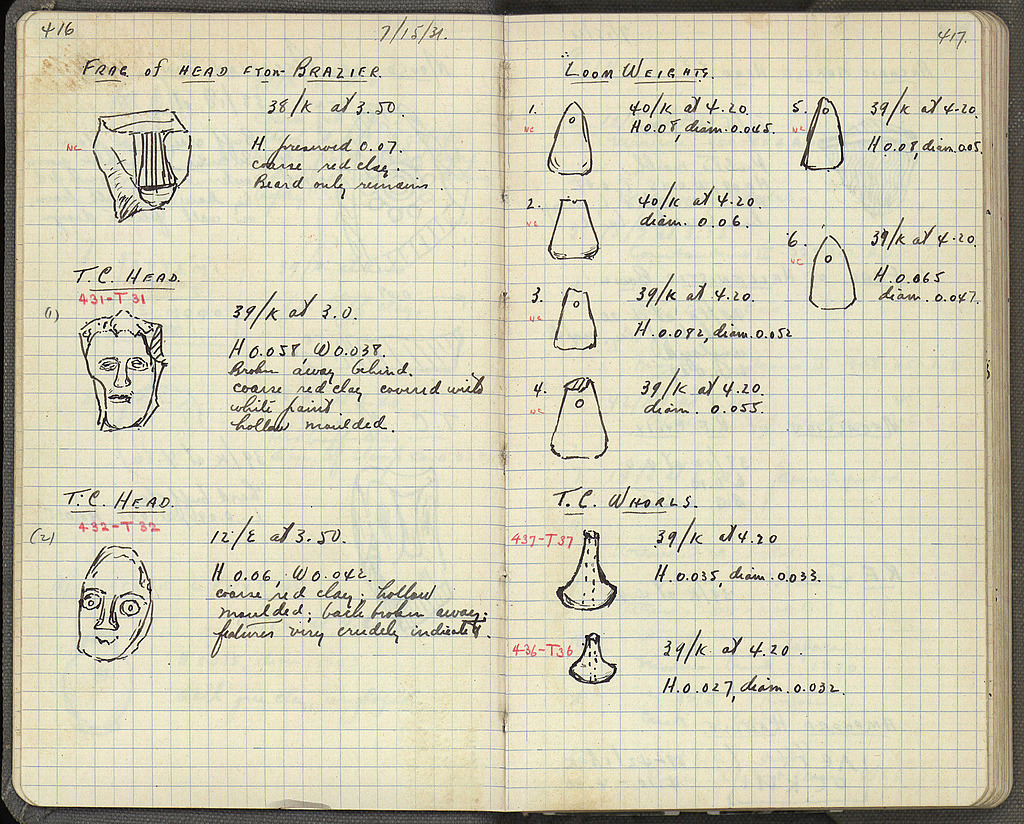 416
7/15/31.
FRAG of HEAD FROM BRAZIER.
38/K at 3.50.
NC
H. preserved 0.07.
coarse red clay.
Beard only remains.
T.C. HEAD.
431-T31
(1)
39/K at 3.0.
H 0.058, W 0.038.
Broken away behind.
coarse red clay covered with
white paint.
hollow moulded.
T.C. HEAD.
432-T32
(2)
12/E at 3.50.
H 0.06, W 0.042.
coarse red clay; hollow
moulded; back broken away;
features very crudely indicated.
417.
LOOM WEIGHTS.
1.
NC
40/K at 4.20.
H 0.08, diam. 0.045.
2.
NC
40/K at 4.20.
diam. 0.06.
3.
NC
39/K at 4.20.
H. 0.082, diam. 0.052
4.
NC
39/K at 4.20.
diam. 0.055.
5.
NC
39/K at 4.20.
H 0.08, diam. 0.05.
6.
NC
39/K at 4.20.
H 0.065
diam. 0.047.
T.C. WHORLS.
437-T37
39/K at 4.20
H. 0.035, diam. 0.033.
436-T36
39/K at 4.20.
H. 0.027, diam. 0.032.